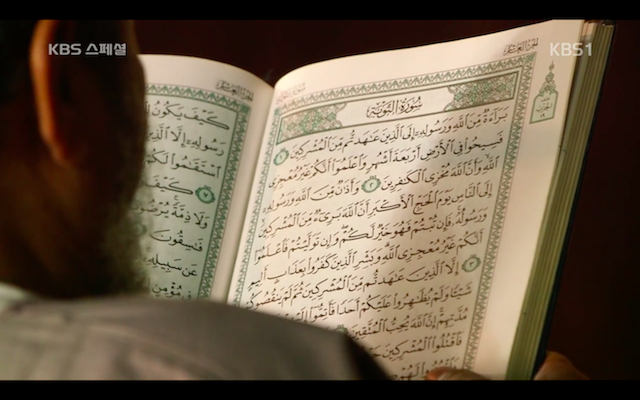 KBS 스페셜
KBS1
سُورَةُ التَّوْبَةِ
بَرَآءَةٌ مِّنَ ٱللَّهِ وَرَسُولِهِۦٓ إِلَى ٱلَّذِينَ عَٰهَدتُّم مِّنَ ٱلْمُشْرِكِينَ ١
فَسِيحُوا۟ فِى ٱلْأَرْضِ أَرْبَعَةَ أَشْهُرٍ وَٱعْلَمُوٓا۟ أَنَّكُمْ غَيْرُ مُعْجِزِى
ٱللَّهِ وَأَنَّ ٱللَّهَ مُخْزِى ٱلْكَٰفِرِينَ ٢ وَأَذَٰنٌ مِّنَ ٱللَّهِ وَرَسُولِهِۦٓ
إِلَى ٱلنَّاسِ يَوْمَ ٱلْحَجِّ ٱلْأَكْبَرِ أَنَّ ٱللَّهَ بَرِىٓءٌ مِّنَ ٱلْمُشْرِكِينَ
وَرَسُولُهُۥ فَإِن تُبْتُمْ فَهُوَ خَيْرٌ لَّكُمْ وَإِن تَوَلَّيْتُمْ فَٱعْلَمُوٓا۟
أَنَّكُمْ غَيْرُ مُعْجِزِى ٱللَّهِ وَبَشِّرِ ٱلَّذِينَ كَفَرُوا۟ بِعَذَابٍ أَلِيمٍ ٣
إِلَّا ٱلَّذِينَ عَٰهَدتُّم مِّنَ ٱلْمُشْرِكِينَ ثُمَّ لَمْ يَنقُصُوكُمْ
شَيْـًٔا وَلَمْ يُظَٰهِرُوا۟ عَلَيْكُمْ أَحَدًا فَأَتِمُّوٓا۟
مُدَّتِهِمْ إِنَّ ٱللَّهَ يُحِبُّ ٱلْمُتَّقِينَ
فَٱقْتُلُوا۟ ٱلْمُشْرِكِينَ
كَيْفَ يَكُونُ
رَسُولِهِۦٓ إِلَّا
ٱسْتَقَٰمُوا۟ لَكُمْ
كَيْفَ
وَلَا ذِمَّةً
فَٰسِقُونَ
عَن سَبِيلِهِۦٓ
فِى